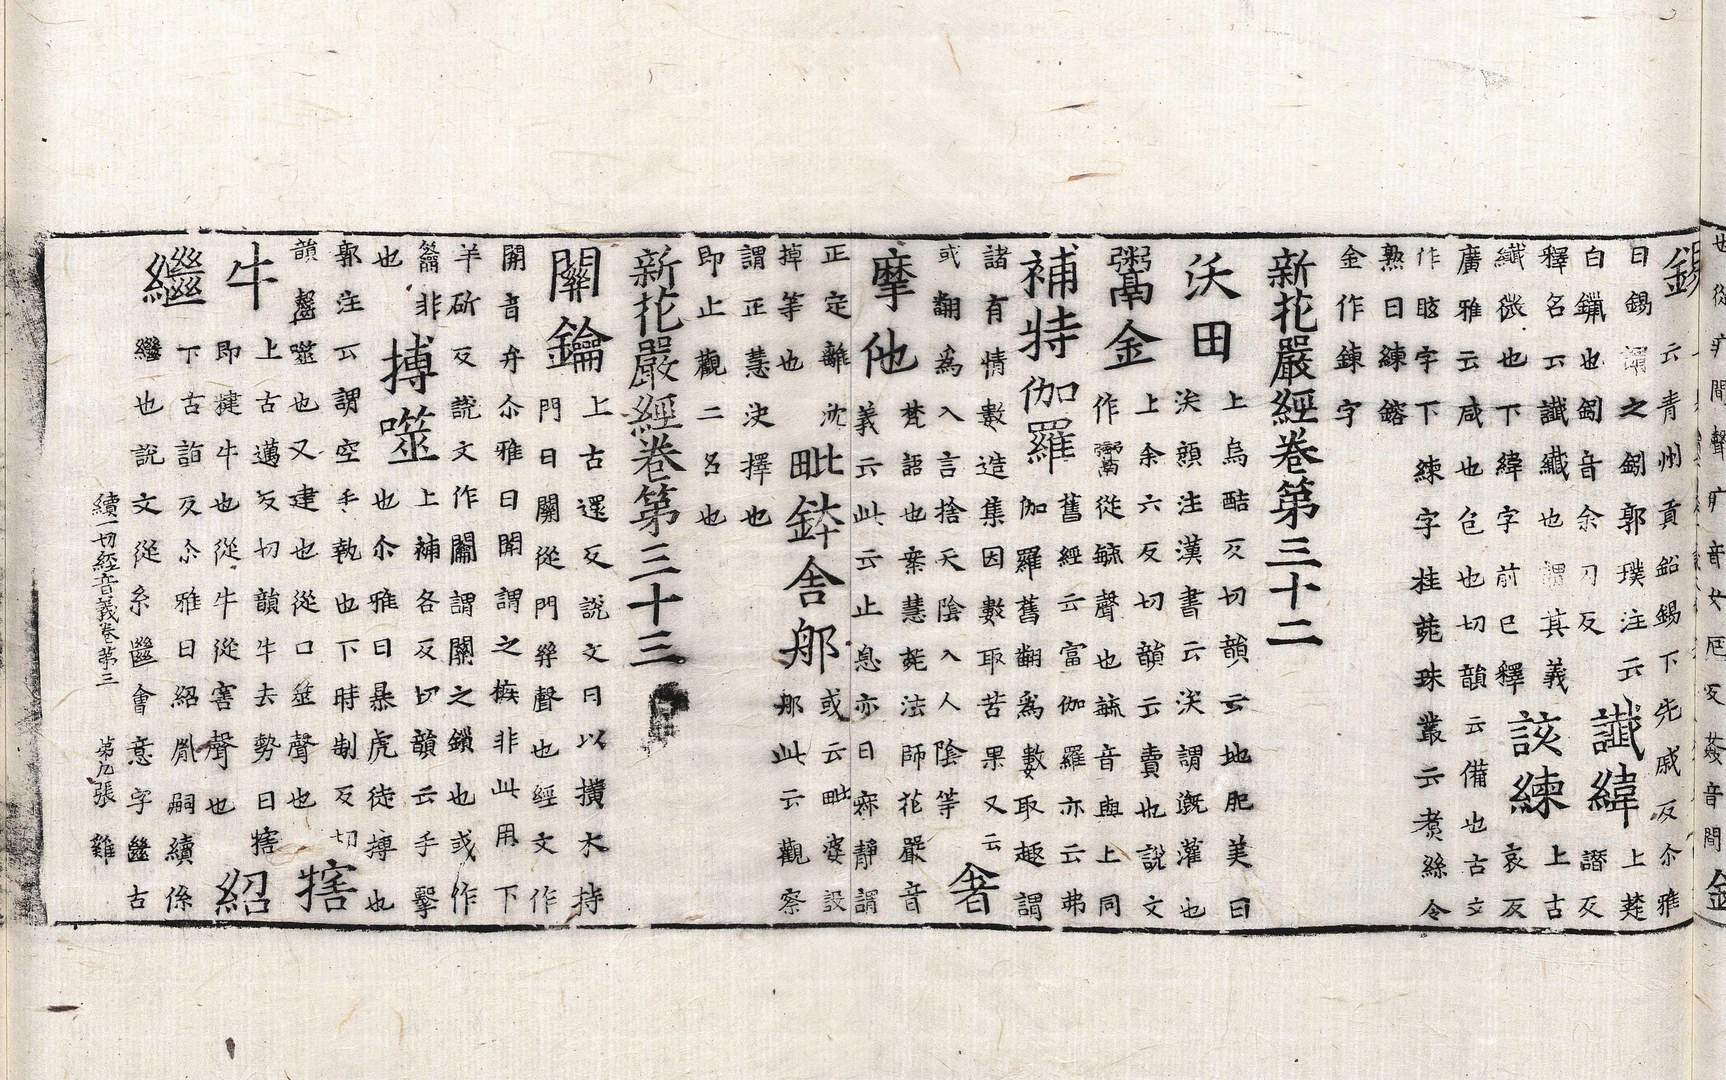 也從疒間聲疒音女厄反菱音間
錫
云青州貢鉛錫下先戚反尒雅
曰錫謂之鈏郭璞注云
白鑞也鈏音余刃反
讖緯
上楚
譖反
釋名云讖纖也謂其義
纖微也下緯字前已釋
該練
上古
哀反
廣雅云咸也包也切韻云備也古文
作晐字下練字桂苑珠叢云煮絲令
熟曰練鎔
金作鍊字
新花嚴經卷第三十二
沃田
上烏酷反切韻云地肥美曰
沃顔注漢書云沃謂溉灌也
鬻金
上余六反切韻云賣也說文
作鬻從毓聲也毓音與上同
補特伽羅
舊經云富伽羅亦云弗
伽羅舊翻為數取趣謂
諸有情數造集因數取苦果又云
或翻為入言捨天陰入人陰等
奢
摩他
梵語也案慧苑法師花嚴音
義云此云止息亦曰寂靜謂
正定離沈
掉等也
毗鉢舍那
或云毗婆設
那此云觀察
謂正慧決擇也
即止觀二名也
新花嚴經卷第三十三
關鑰
上古還反說文曰以撗木持
門曰關從門聲也經文作
開音弁尒雅曰開謂之槉非此用下
羊斫反說文作闟謂關之鎖也或作
籥非
也
搏噬
上補各反切韻云手擊
也尒雅曰暴虎徒搏也
郭注云謂空手執也下時制反切
韻齧噬也又逮也從口筮聲也
犗
牛
上古邁反切韻牛去勢曰犗
即犍牛也從牛從害聲也
紹
繼
下古詣反尒雅曰紹胤嗣續係
繼也說文從糸㡭會意字㡭古
續一切經音義卷第三 第九張 雞